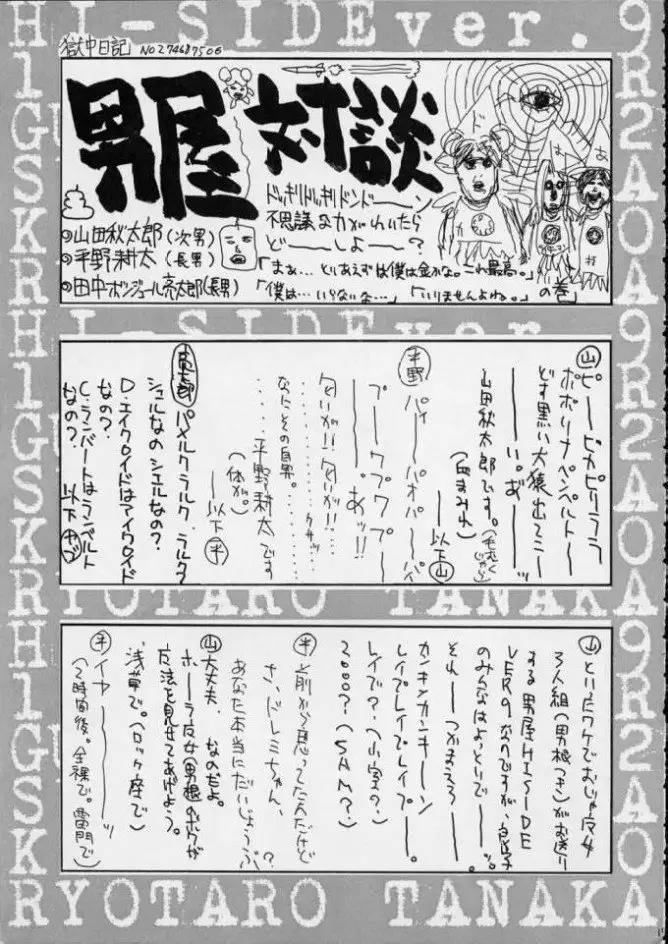 HI-SIDEver.9
獄中日記 NO274687506
男屋対談
ドッキリドッキリドンドーン
不思議な力がわいたら
どーーしよー？
山田秋太郎(次男)
平野耕太(長男)
田中ボンジュール亮太郎(長男)
「まぁ…とりあえずは僕は金かな。これ最高。」
「僕は…いらないな…」「いりませんよね。」の巻
HI-SIDEver.9
山 ピーーピカピリララ
ポポリナペペルトー
どす黒い犬猿出てこー
ーーい。お゛ーーッ
山田秋太郎です。
(血まみれ)
ー以下山
平野 パイーーパオパーーパイ
プーープワプワプー
ーーー。あッ!!
匂いが!!匂いが!!
なにその自男。
平野耕太です
(体が。)
ー以下平
パメルクラルク、ラルク
シエルなのシエルなの？
D.エイクロイドはアイクロイド
なの？
C.ランバートはランベルト
なの？ 以下
RYOTARO TANAKA
HI-SIDEver.9
山 とりたワケでおじゃ魔女
3人組(男根つき)がお送り
する男屋HISIDE
VER9なのですが、良い子
のみんなはよっといでーーッ。
それーーつかまえろーーー。
カンキンカンキーーン
レイプレイプレイプーー。
レイプで？(小室？)
2000？(SAM？)
平 前から思ってたんだけど
さ、ドレミちゃん、
あなた本当にだいじょうぶ？
山 大丈夫、なのだよ。
ホーラ魔女(男根の)ボクが
魔法を見せてあげよう。
浅草で。(ロック座で)
平 イヤーーーーッ
(2時間後。全裸で。雷門で)
RYOTARO TANAKA